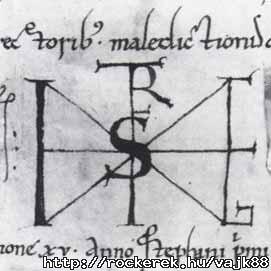 rectoribꝰ. maledictionidꝰ
T
R
I S E
none xv. Anno stephani pmi
http://rockerek.hu/vajk88